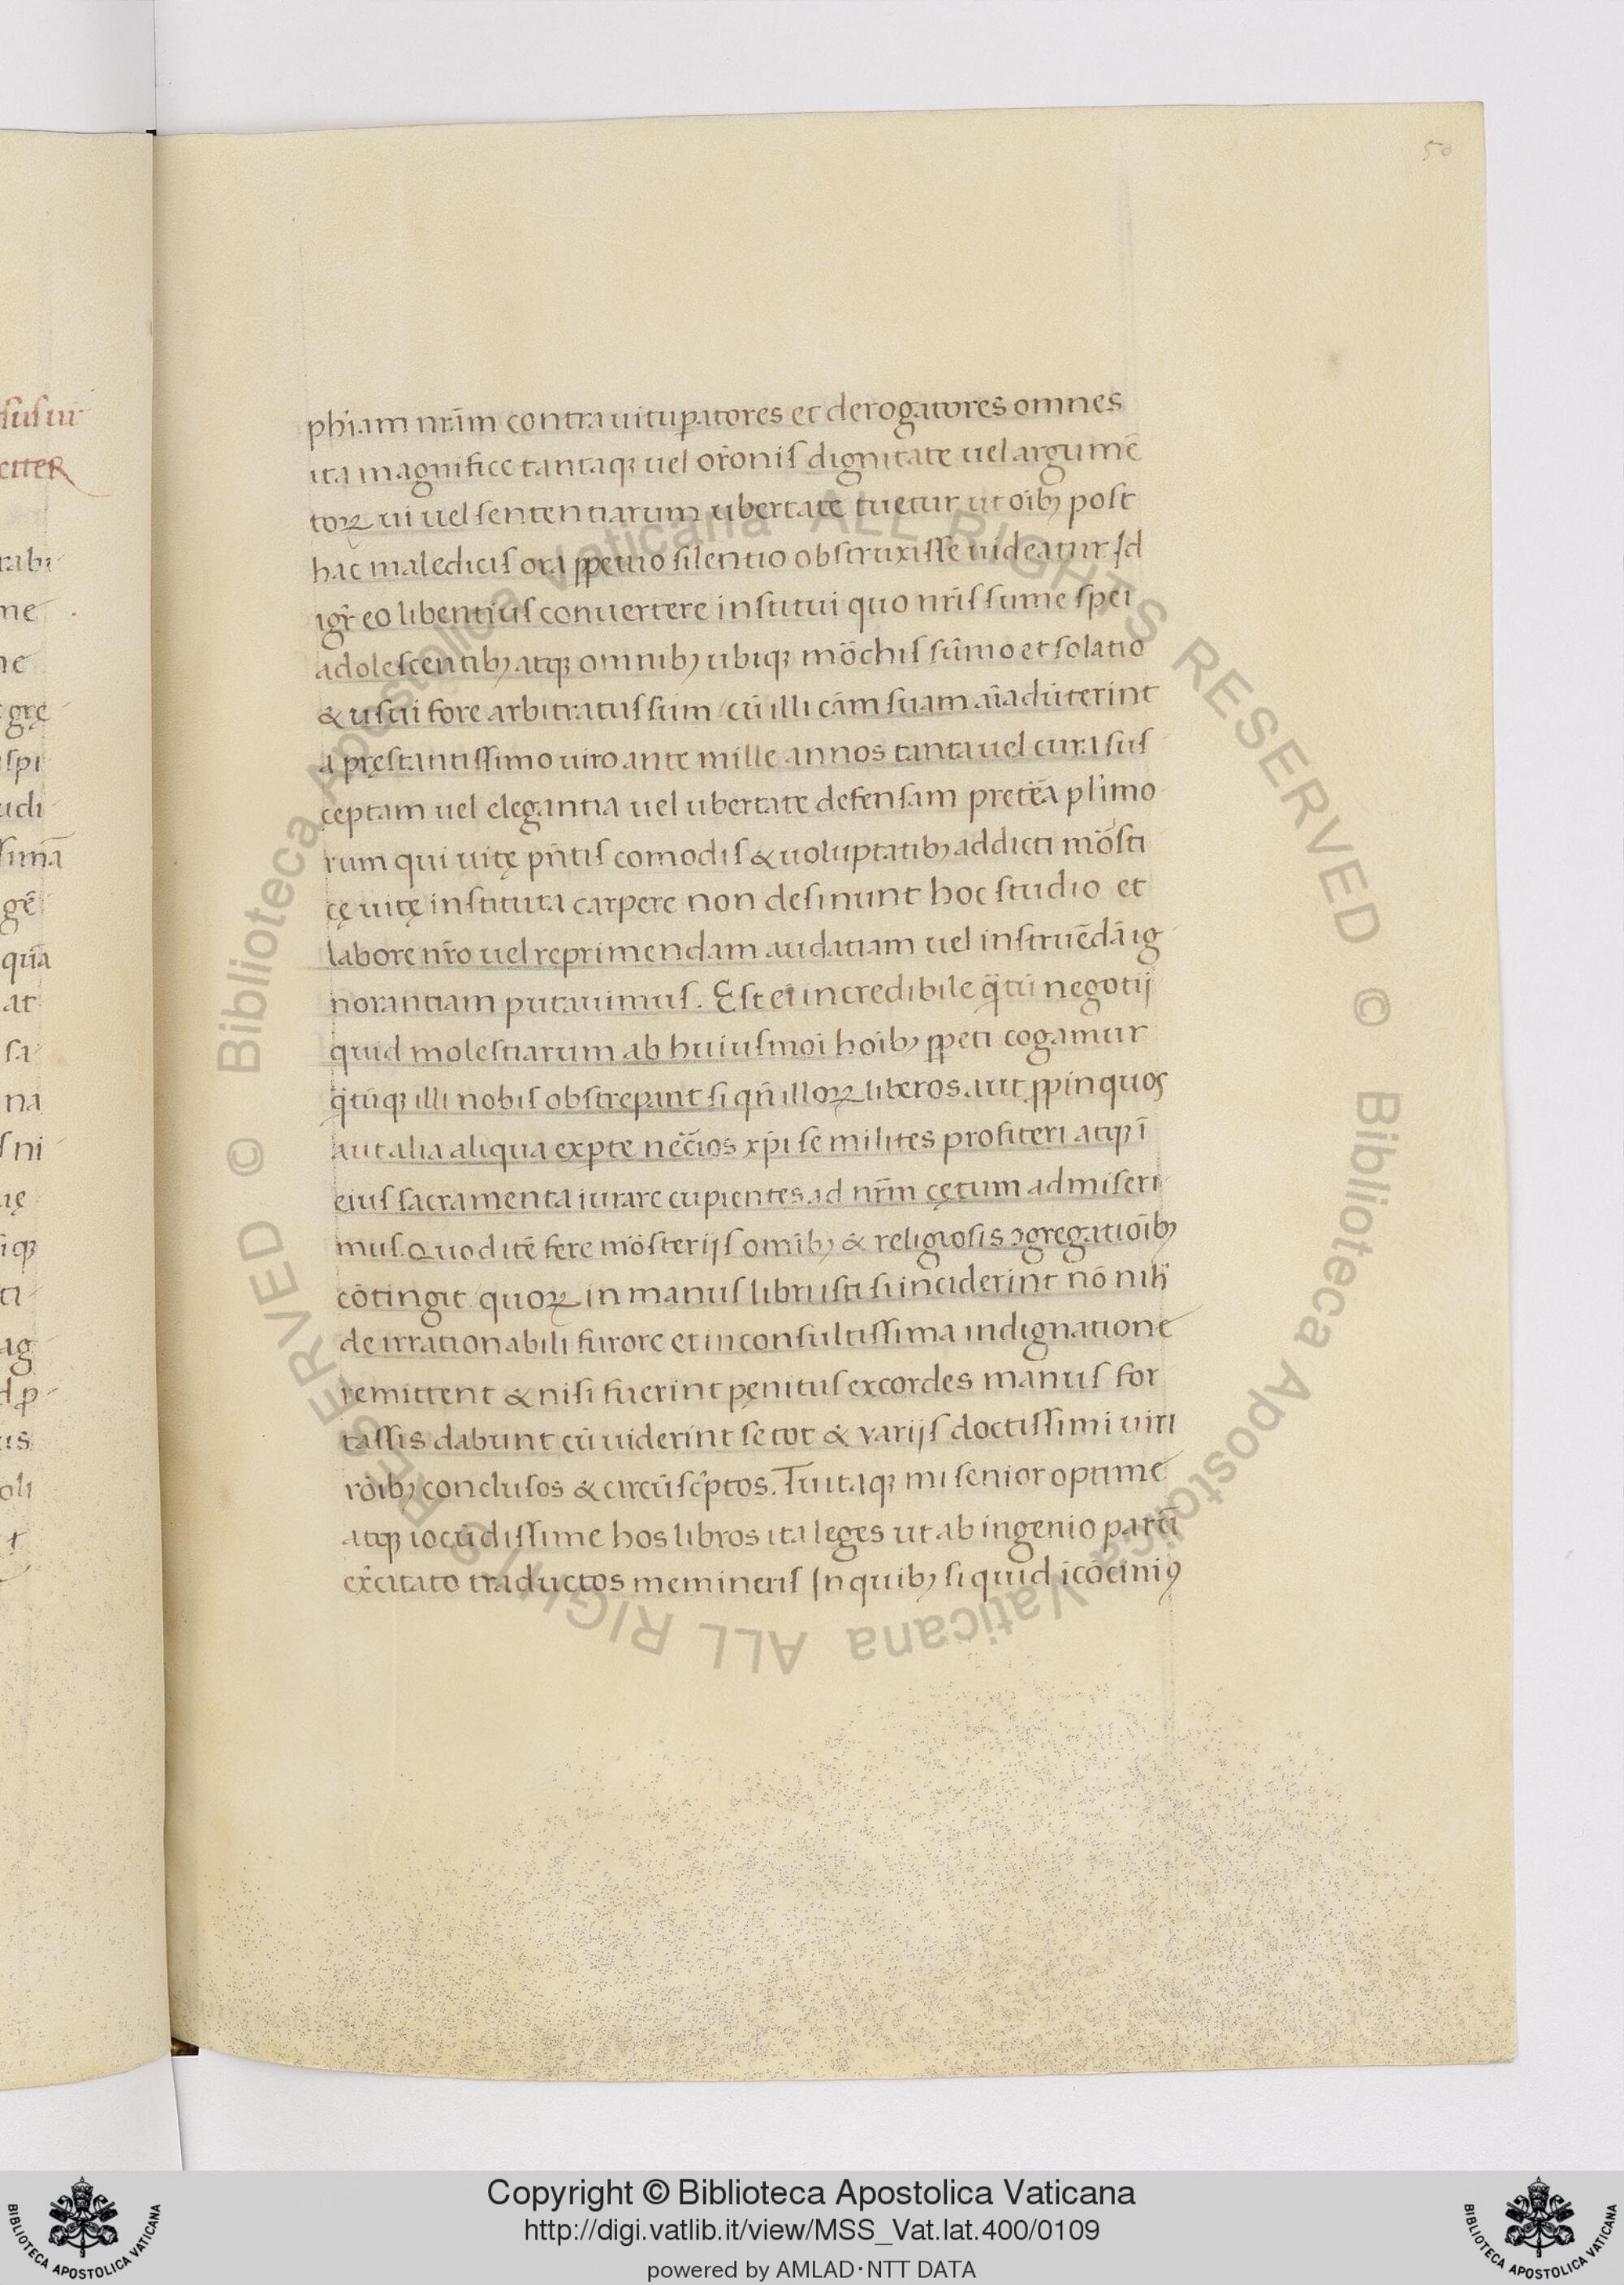 50
phiam nr̄m contra uituꝑatores et derogatores omnes
ita magnifice tantaqꝫ uel or̄onis dignitate uel argumē
toꝝ ui uel sententiarum ubertate tuetur ut oībꝫ post
hac maledicis ora ꝑpetuo silentio obstruxisse uideatur. Id
igr̄ eo libentius conuertere institui quo nr̄is summe spei
adolescentibꝫ atqꝫ omnibꝫ ubiqꝫ mōchis sūmo et solatio
& usui fore arbitratus sum / cū illi cām suam aīaduterint
a pręstantissimo uiro ante mille annos tanta uel cura sus
ceptam uel elegantia uel ubertate defensam pretēa plimo
rum qui uitę pn̄tis comodis & uoluptatibꝫ addicti mōsti
cę uitę instituta carpere non desinunt hoc studio et
labore nr̄o uel reprimendam audatiam uel instruēdā ig
norantiam putauimus. Est ei incredibile q̄tū negotij
quid molestiarum ab huiusmoi hoībꝫ ꝑpeti cogamur
q̄tūqꝫ illi nobis obstrepant si qn̄ illoꝝ liberos aut ꝓpinquos
aut alia aliqua exꝑte nec̄ios xp̄i se milites profiteri atqꝫ ī
eius sacramenta iurare cupientes ad nr̄m cętum admiseri
mus. Quod itē fere mōsterijs omībꝫ & religiosis ꝯgregatioībꝫ
cōtingit quoꝝ in manus libri isti si inciderint nō nih̄
de irrationabili furore et inconsultissima indignatione
remittent & nisi fuerint pęnitus excordes manus for
tassis dabunt cū uiderint se tot & varijs doctissimi uiri
rōibꝫ conclusos & circūscp̄tos. Tu itaqꝫ mi senior optime
atqꝫ iocūdissime hos libros ita leges ut ab ingenio parū
exc̄itato traductos memineris In quibꝫ si quid īcōciniꝰ
Copyright © Biblioteca Apostolica Vaticana
http://digi.vatlib.it/view/MSS_Vat.lat.400/0109
powered by AMLAD·NTT DATA